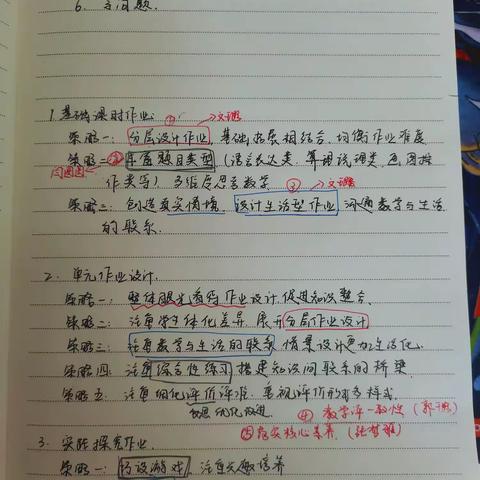 6. 与问题.
1. 基础课时作业. ①
策略一: 分层设计作业, 基础拓展相结合, 均衡作业难度
策略二: ② 丰富题目类型 (语言表达类、算理说理类、画图操
作类等), 多维度思考数学 ③
策略三: 创造真实情境, 设计生活型作业, 沟通数学与生活
的联系.
2. 单元作业设计.
策略一: 整体眼光看待作业设计, 促进知识整合.
策略二: 注重学生个体化差异, 展开分层作业设计
策略三: 注重数学与生活的联系, 情景设计更加生活化.
策略四: 注重综合性练习, 搭建知识间联系的桥梁.
策略五: 注重细化评价评准, 重视评价的多样式.
优化改进. ④ 数学评一致性
⑤ 落实核心素养.
3. 实践探究作业.
策略一: 巧设游戏, 注重兴趣培养